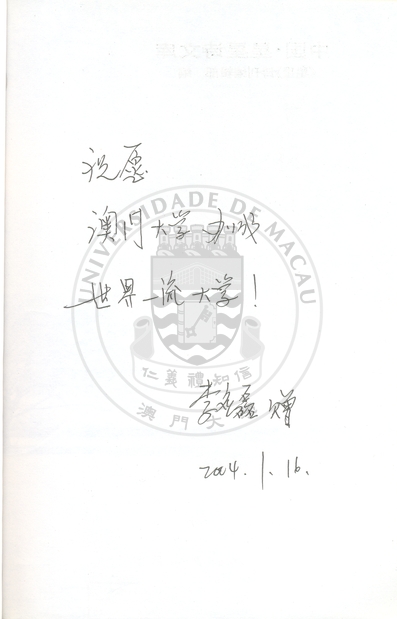 祝愿
澳门大学办成
世界一流大学！
李 磊 赠
2004.1.16.
UNIVERSIDADE DE MACAU
仁義禮知信
澳門大